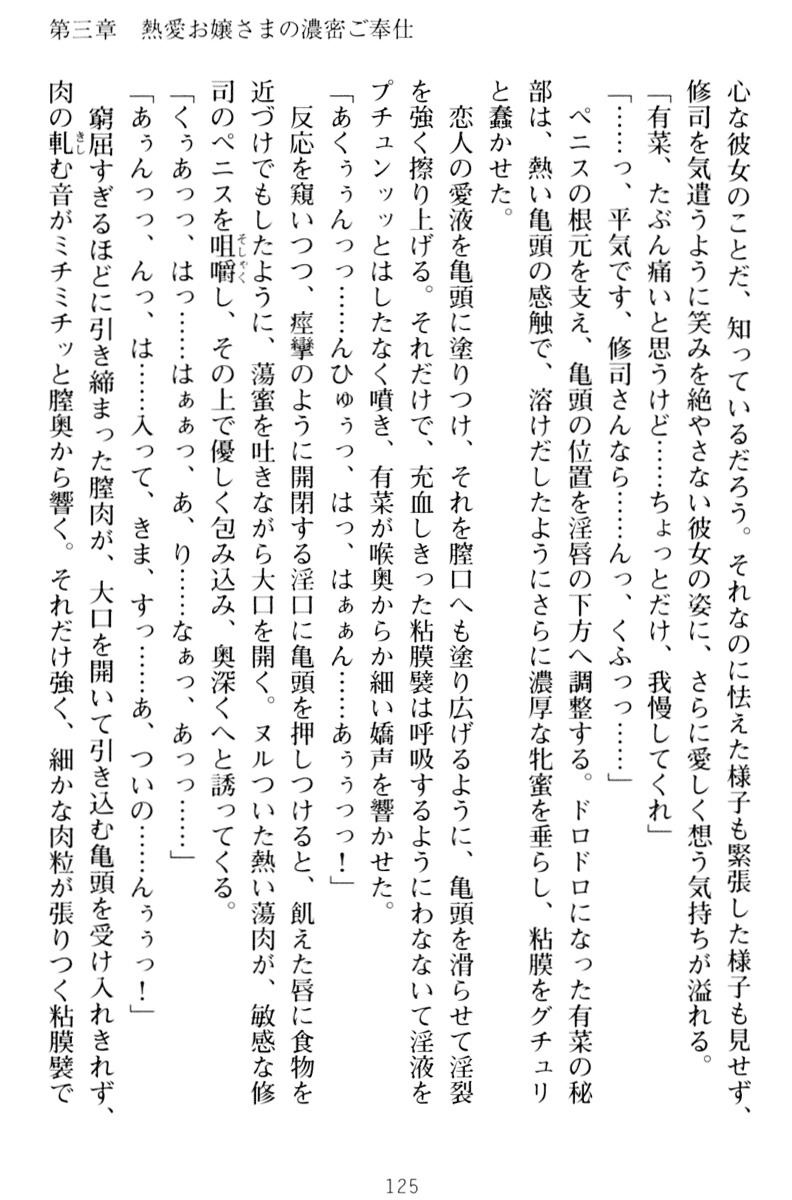 第三章　熱愛お嬢さまの濃密ご奉仕
心な彼女のことだ、知っているだろう。それなのに怯えた様子も緊張した様子も見せず、
修司を気遣うように笑みを絶やさない彼女の姿に、さらに愛しく想う気持ちが溢れる。
「有菜、たぶん痛いと思うけど……ちょっとだけ、我慢してくれ」
「……っ、平気です、修司さんなら……んっ、くふっっ……」
ペニスの根元を支え、亀頭の位置を淫唇の下方へ調整する。ドロドロになった有菜の秘
部は、熱い亀頭の感触で、溶けだしたようにさらに濃厚な牝蜜を垂らし、粘膜をグチュリ
と蠢かせた。
恋人の愛液を亀頭に塗りつけ、それを膣口へも塗り広げるように、亀頭を滑らせて淫裂
を強く擦り上げる。それだけで、充血しきった粘膜襞は呼吸するようにわなないて淫液を
プチュンッッとはしたなく噴き、有菜が喉奥からか細い嬌声を響かせた。
「あくぅぅんっっ……んひゅぅっ、はっ、はぁぁん……あぅぅっっ！」
反応を窺いつつ、痙攣のように開閉する淫口に亀頭を押しつけると、飢えた唇に食物を
近づけでもしたように、蕩蜜を吐きながら大口を開く。ヌルついた熱い蕩肉が、敏感な修
司のペニスを咀嚼し、その上で優しく包み込み、奥深くへと誘ってくる。
「くぅあっっ、はっ……はぁぁっ、あ、り……なぁっ、あっっ……」
「あぅんっっ、んっ、は……入って、きま、すっ……あ、ついの……んぅぅっ！」
窮屈すぎるほどに引き締まった膣肉が、大口を開いて引き込む亀頭を受け入れきれず、
肉の軋む音がミチミチッと膣奥から響く。それだけ強く、細かな肉粒が張りつく粘膜襞で
125